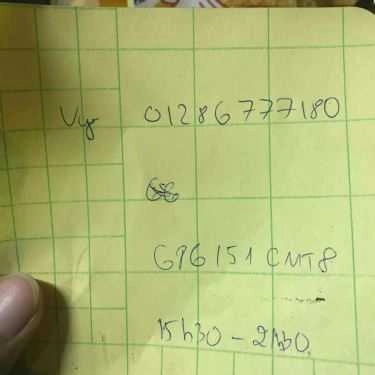 Vy 01286777180
676151 CMT8
15h30 - 21h30